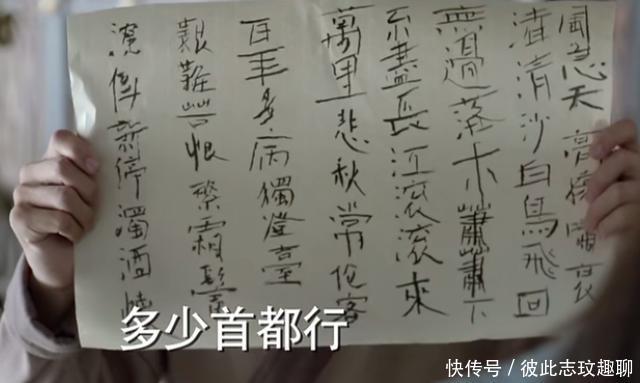 風急天高猿嘯哀
渚清沙白鳥飛回
無邊落木蕭蕭下
不盡長江滾滾來
萬里悲秋常作客
百年多病獨澄臺
艱難苦恨繁霜鬢
潦倒新停濁酒
多少首都行
快传号／彼此志玟趣聊